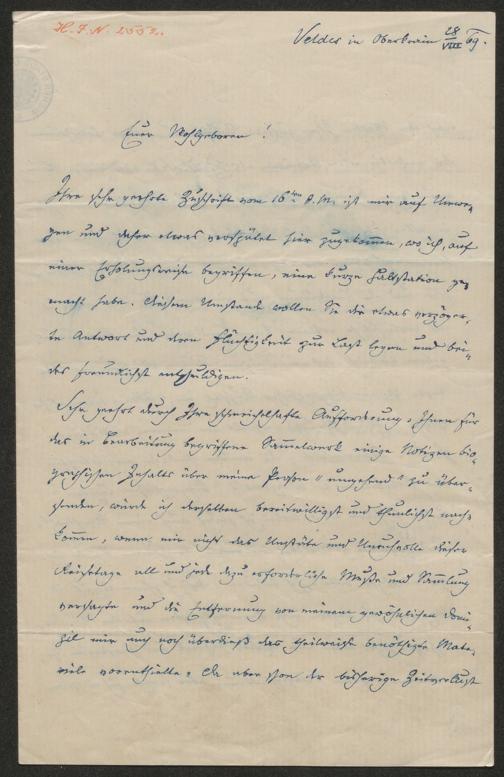 H. I. N. 2553.
Veldes in Oberkrain 28/VIII 69.
Euer Wohlgeboren!
Ihre sehr geehrte Zuschrift vom 16ten d. M. ist mir auf Umwe-
gen und daher etwas verspätet hier zugekommen, wo ich, auf
einer Erholungsreise begriffen, eine kurze Haltstation ge-
macht habe. Diesem Umstande wollen Sie die etwas verzöger-
te Antwort und deren Flüchtigkeit zur Last legen und bei-
des freundlichst entschuldigen.
Sehr geehrt durch Ihre schmeichelhafte Aufforderung, Ihnen für
das in Bearbeitung begriffene Sammelwerk einige Notizen bio-
graphischen Inhalts über meine Person "umgehend" zu über-
senden, würde ich derselben bereitwilligst und thunlichst nach-
kommen, wenn mir nicht das Unstäte und Unruhvolle dieser
Reisetage all und jede dazu erforderliche Muße und Sammlung
versagte und die Entfernung von meinem gewöhnlichen Domi-
zil mir auch noch überdieß das theilweise benöthigte Mate-
riale vorenthielte. Da aber schon der bisherige Zeitverlust